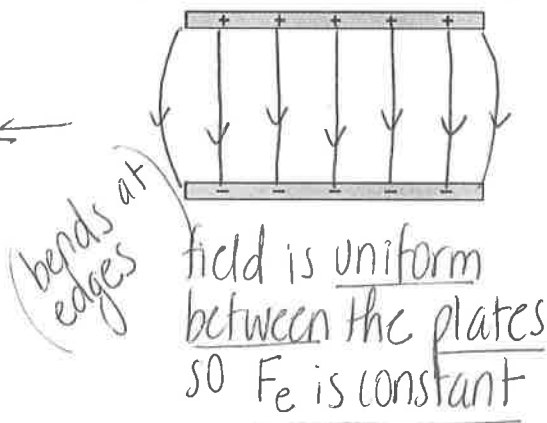 + + + + +
- - - - -
(bends at
edges
field is uniform
between the plates
so Fe is constant